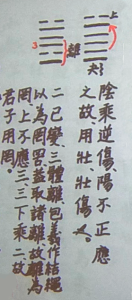 上
六三
3
離
陰乘逆傷,陽不正應
之故,用壯,壯傷
二已變,三體離,包羲作結繩
以為罔罟,蓋取諸離,故離為
罔,上不應三,三下乘二,故
君子用罔。